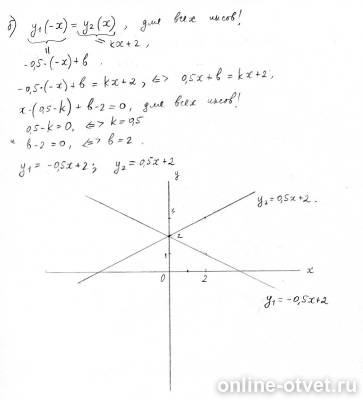 б) y₁(-x) = y₂(x), для всех иксов!
|| = kx+2,
-0,5·(-x)+b
-0,5·(-x)+b = kx+2, <=> 0,5x+b = kx+2,
x·(0,5-k)+b-2=0, для всех иксов!
0,5-k=0, <=> k=0,5
и b-2=0, <=> b=2.
y₁ = -0,5x+2; y₂ = 0,5x+2
y
y₂=0,5x+2.
3
2
1
0 2 x
y₁=-0,5x+2
online-otvet.ru